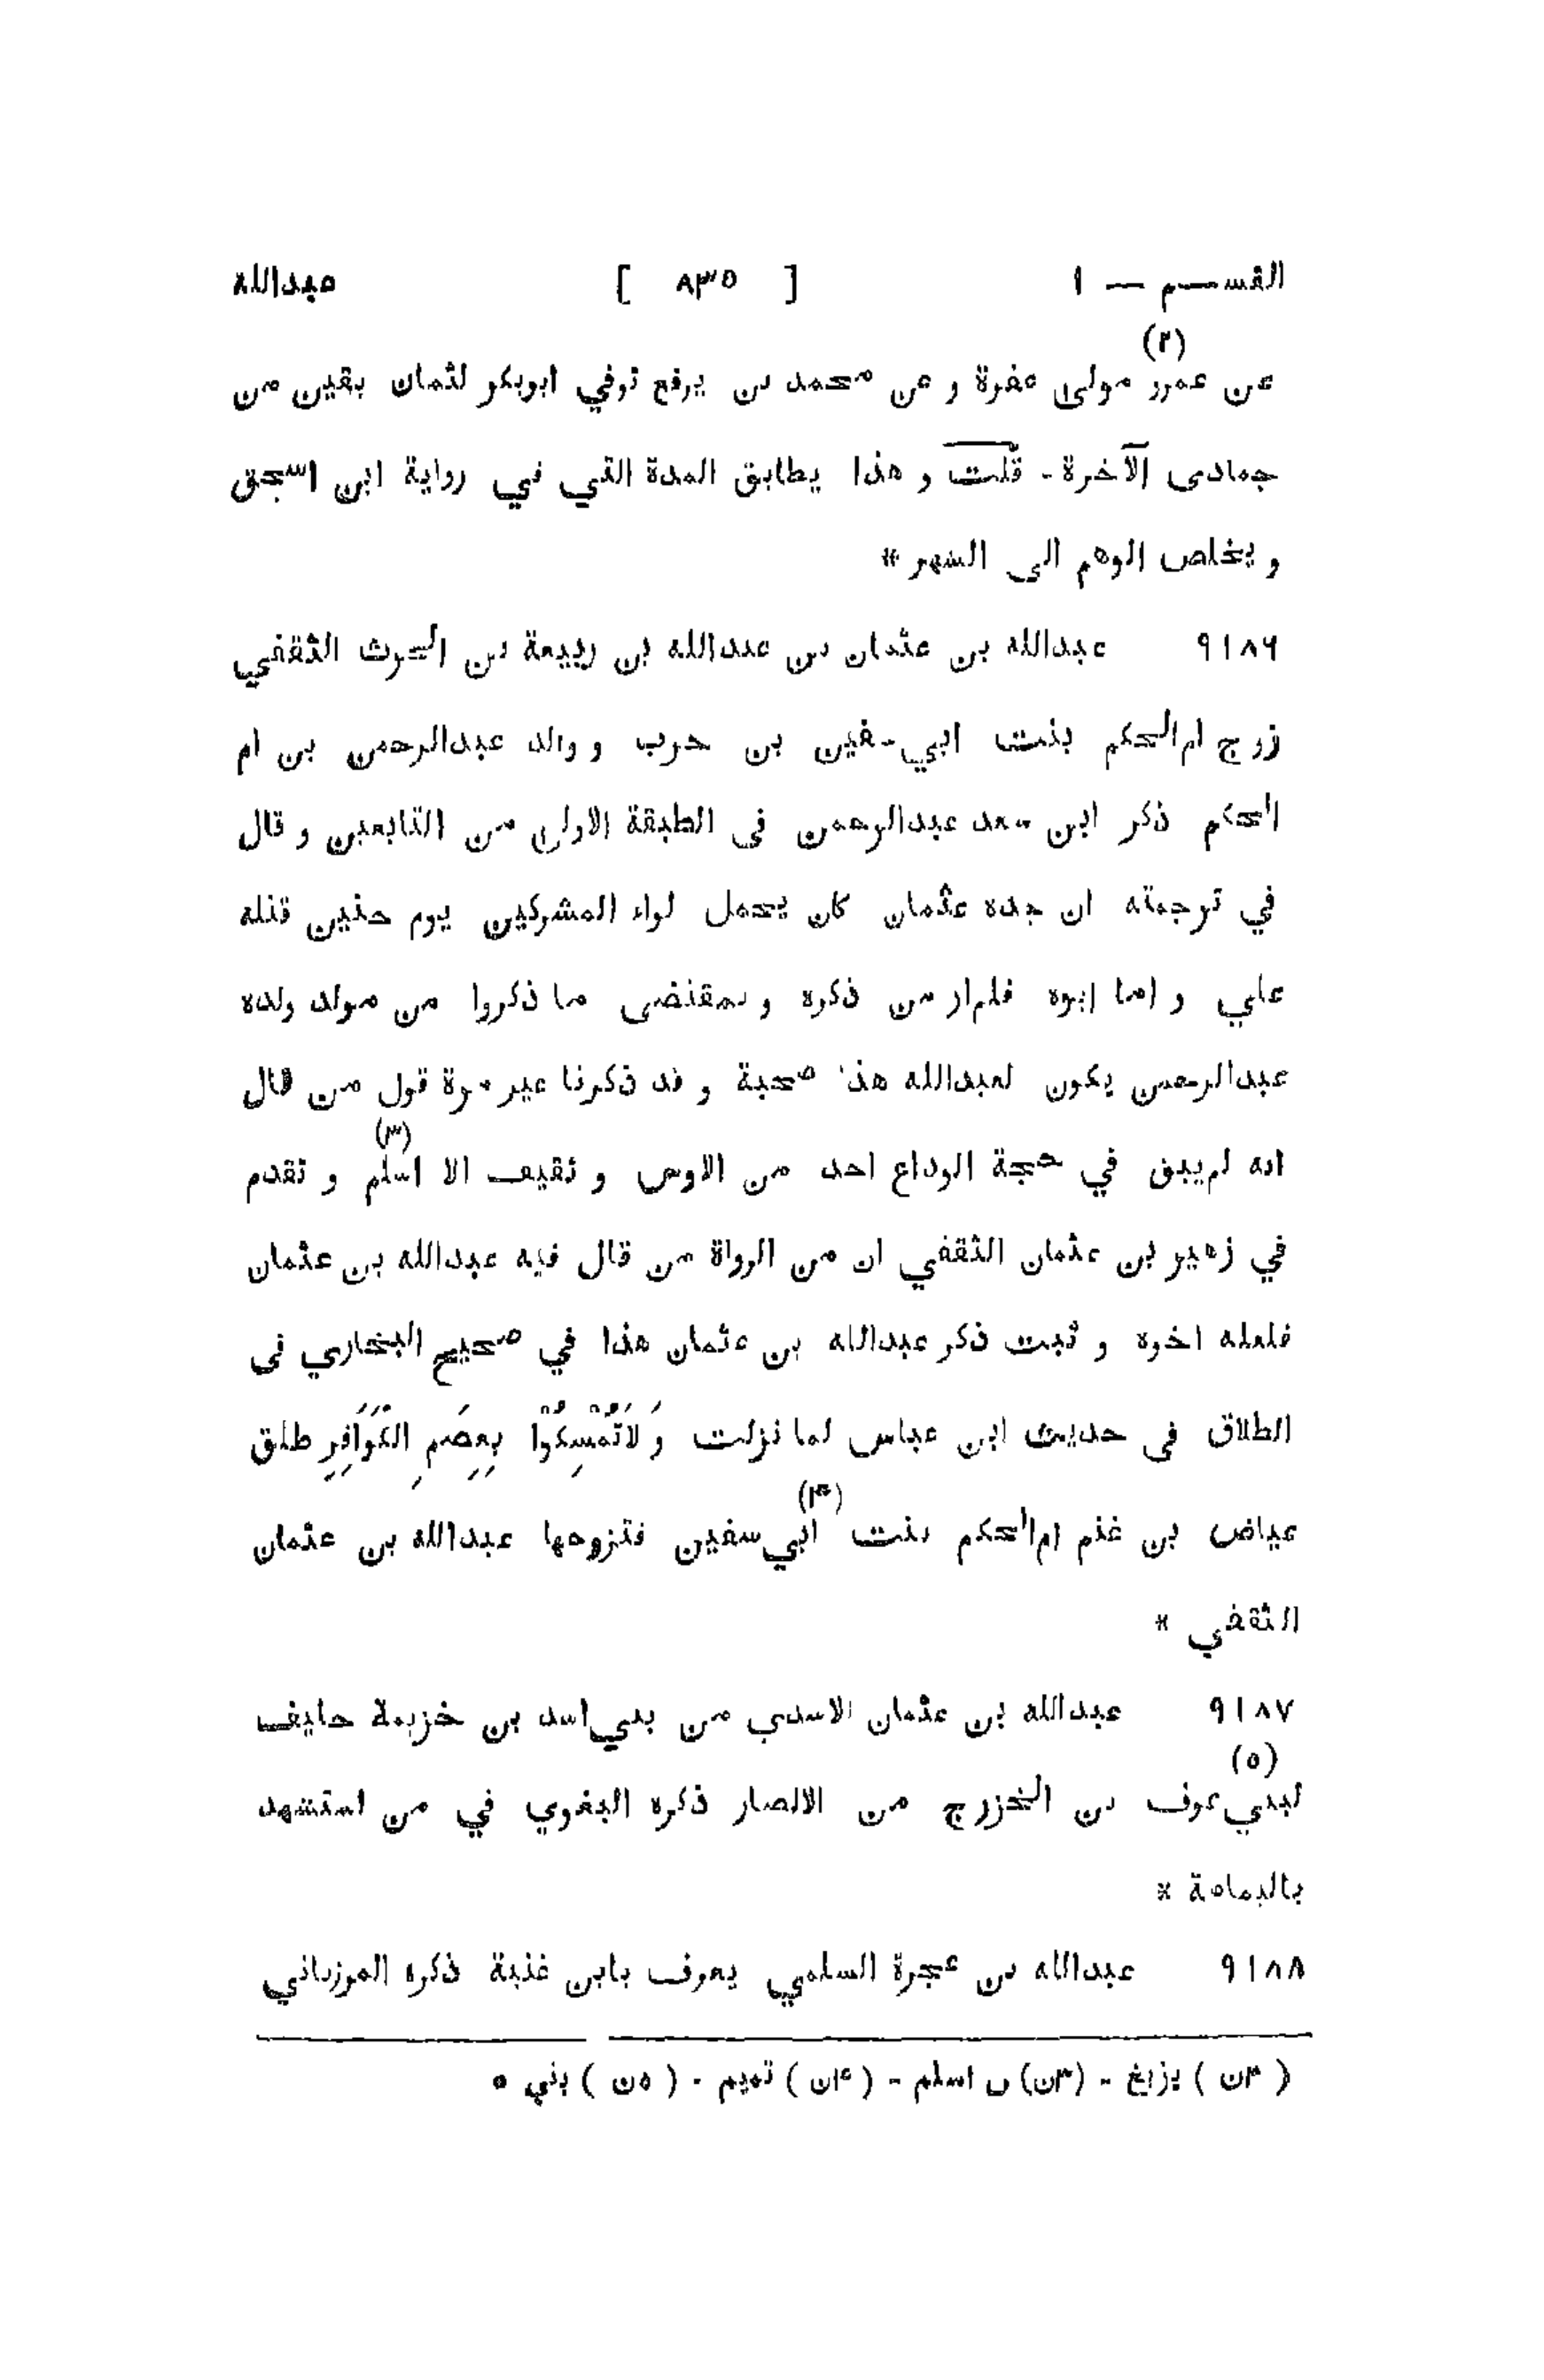 القســـم — ١ [ ٨٣٥ ] عبدالله
(٢)
عن عمرر مولى عفرة و عن محمد بن يرفع توفي ابوبكر لثمان بقين من
جمادى الآخرة - قلت و هذا يطابق المدة التي في رواية ابن اسحق
و يخلص الوهم الى الشهر *
٩١٨٦ عبدالله بن عثمان بن عبدالله بن ربيعة بن الحرث الثقفي
زوج ام الحكم بنت ابي سفين بن حرب و والد عبدالرحمن بن ام
الحكم ذكر ابن سعد عبدالرحمن فى الطبقة الاولى من التابعين و قال
في ترجمته ان جده عثمان كان يحمل لواء المشركين يوم حنين قتله
علي و اما ابوه فلم ار من ذكره و بمقتضى ما ذكروا من مولد ولده
عبدالرحمن يكون لعبدالله هذا صحبة و قد ذكرنا غير مرة قول من قال
(٣)
انه لم يبق في حجة الوداع احد من الاوس و ثقيف الا اسلم و تقدم
في زهير بن عثمان الثقفي ان من الرواة من قال فيه عبدالله بن عثمان
فلعله اخوه و ثبت ذكر عبدالله بن عثمان هذا في صحيح البخاري فى
الطلاق فى حديث ابن عباس لما نزلت وَ لَا تُمْسِكُوْا بِعِصَمِ الْكَوَافِرِ طلق
(۴)
عياض بن غنم ام الحكم بنت ابي سفين فتزوجها عبدالله بن عثمان
الثقفي *
٩١٨٧ عبدالله بن عثمان الاسدي من بني اسد بن خزيمة حليف
(٥)
لبني عوف بن الخزرج من الانصار ذكره البغوي في من استشهد
باليمامة *
٩١٨٨ عبدالله بن عجرة السلمي يعرف بابن غنية ذكره المرزباني
( ٢ن ) بزيغ - (٣ن) ں اسلم - ( ۴ن ) تميم - ( ٥ن ) بني *